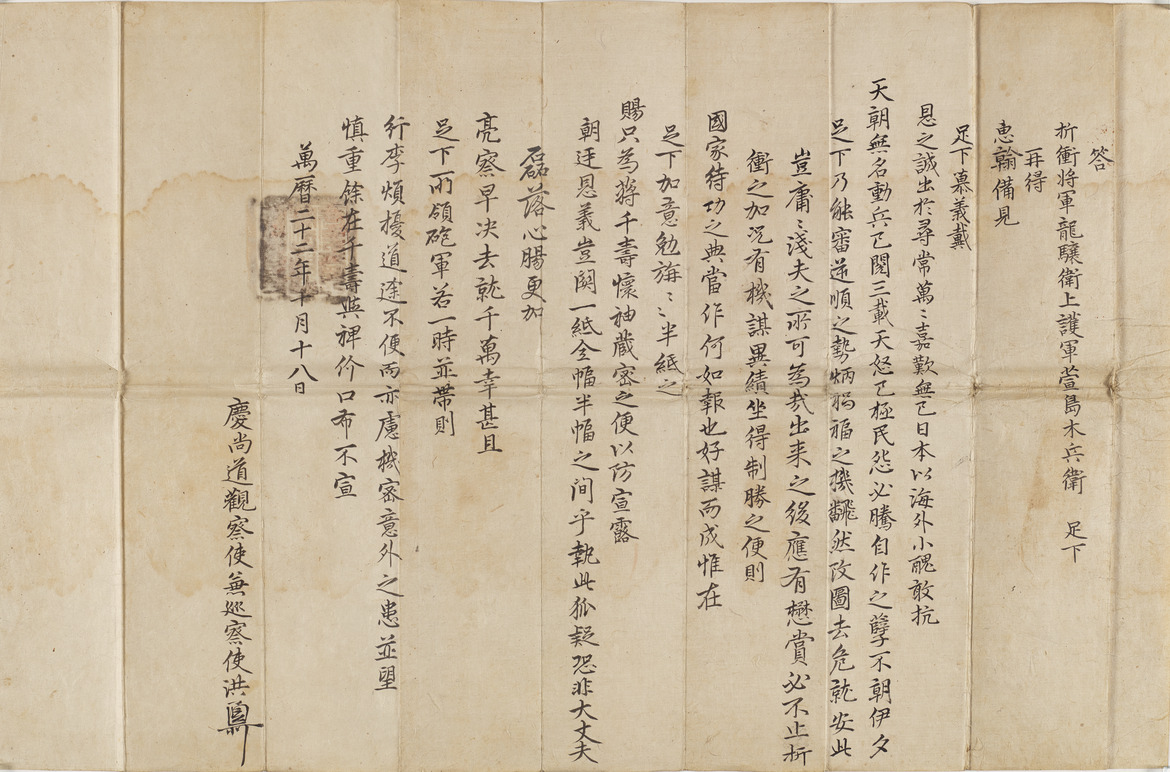 答
折衝將軍龍驤衛上護軍萱島木兵衛　足下
再得
惠翰備見
足下慕義戴
恩之誠出於尋常萬〻嘉歎無已日本以海外小醜敢抗
天朝無名動兵已閱三載天怒已極民怨必騰自作之孽不朝伊夕
足下乃能審逆順之勢炳禍福之機飜然改圖去危就安此
豈庸〻淺夫之所可為哉出来之後應有懋賞必不止折
衝之加况有機謀異績坐得制勝之便則
國家待功之典當作何如報也好謀而成惟在
足下加意勉旃〻半紙之
賜只為蔣千壽懷袖藏密之便以防宣露
朝廷恩義豈関一紙全幅半幅之间乎執此狐疑恐非大丈夫
磊落心膓更加
亮察早决去就千萬幸甚且
足下所領砲軍若一時並帶則
行李煩擾道途不便而亦慮機密意外之患並望
慎重餘在千壽與裨价口布不宣
萬曆二十二年十月十八日
慶尚道觀察使兼巡察使洪